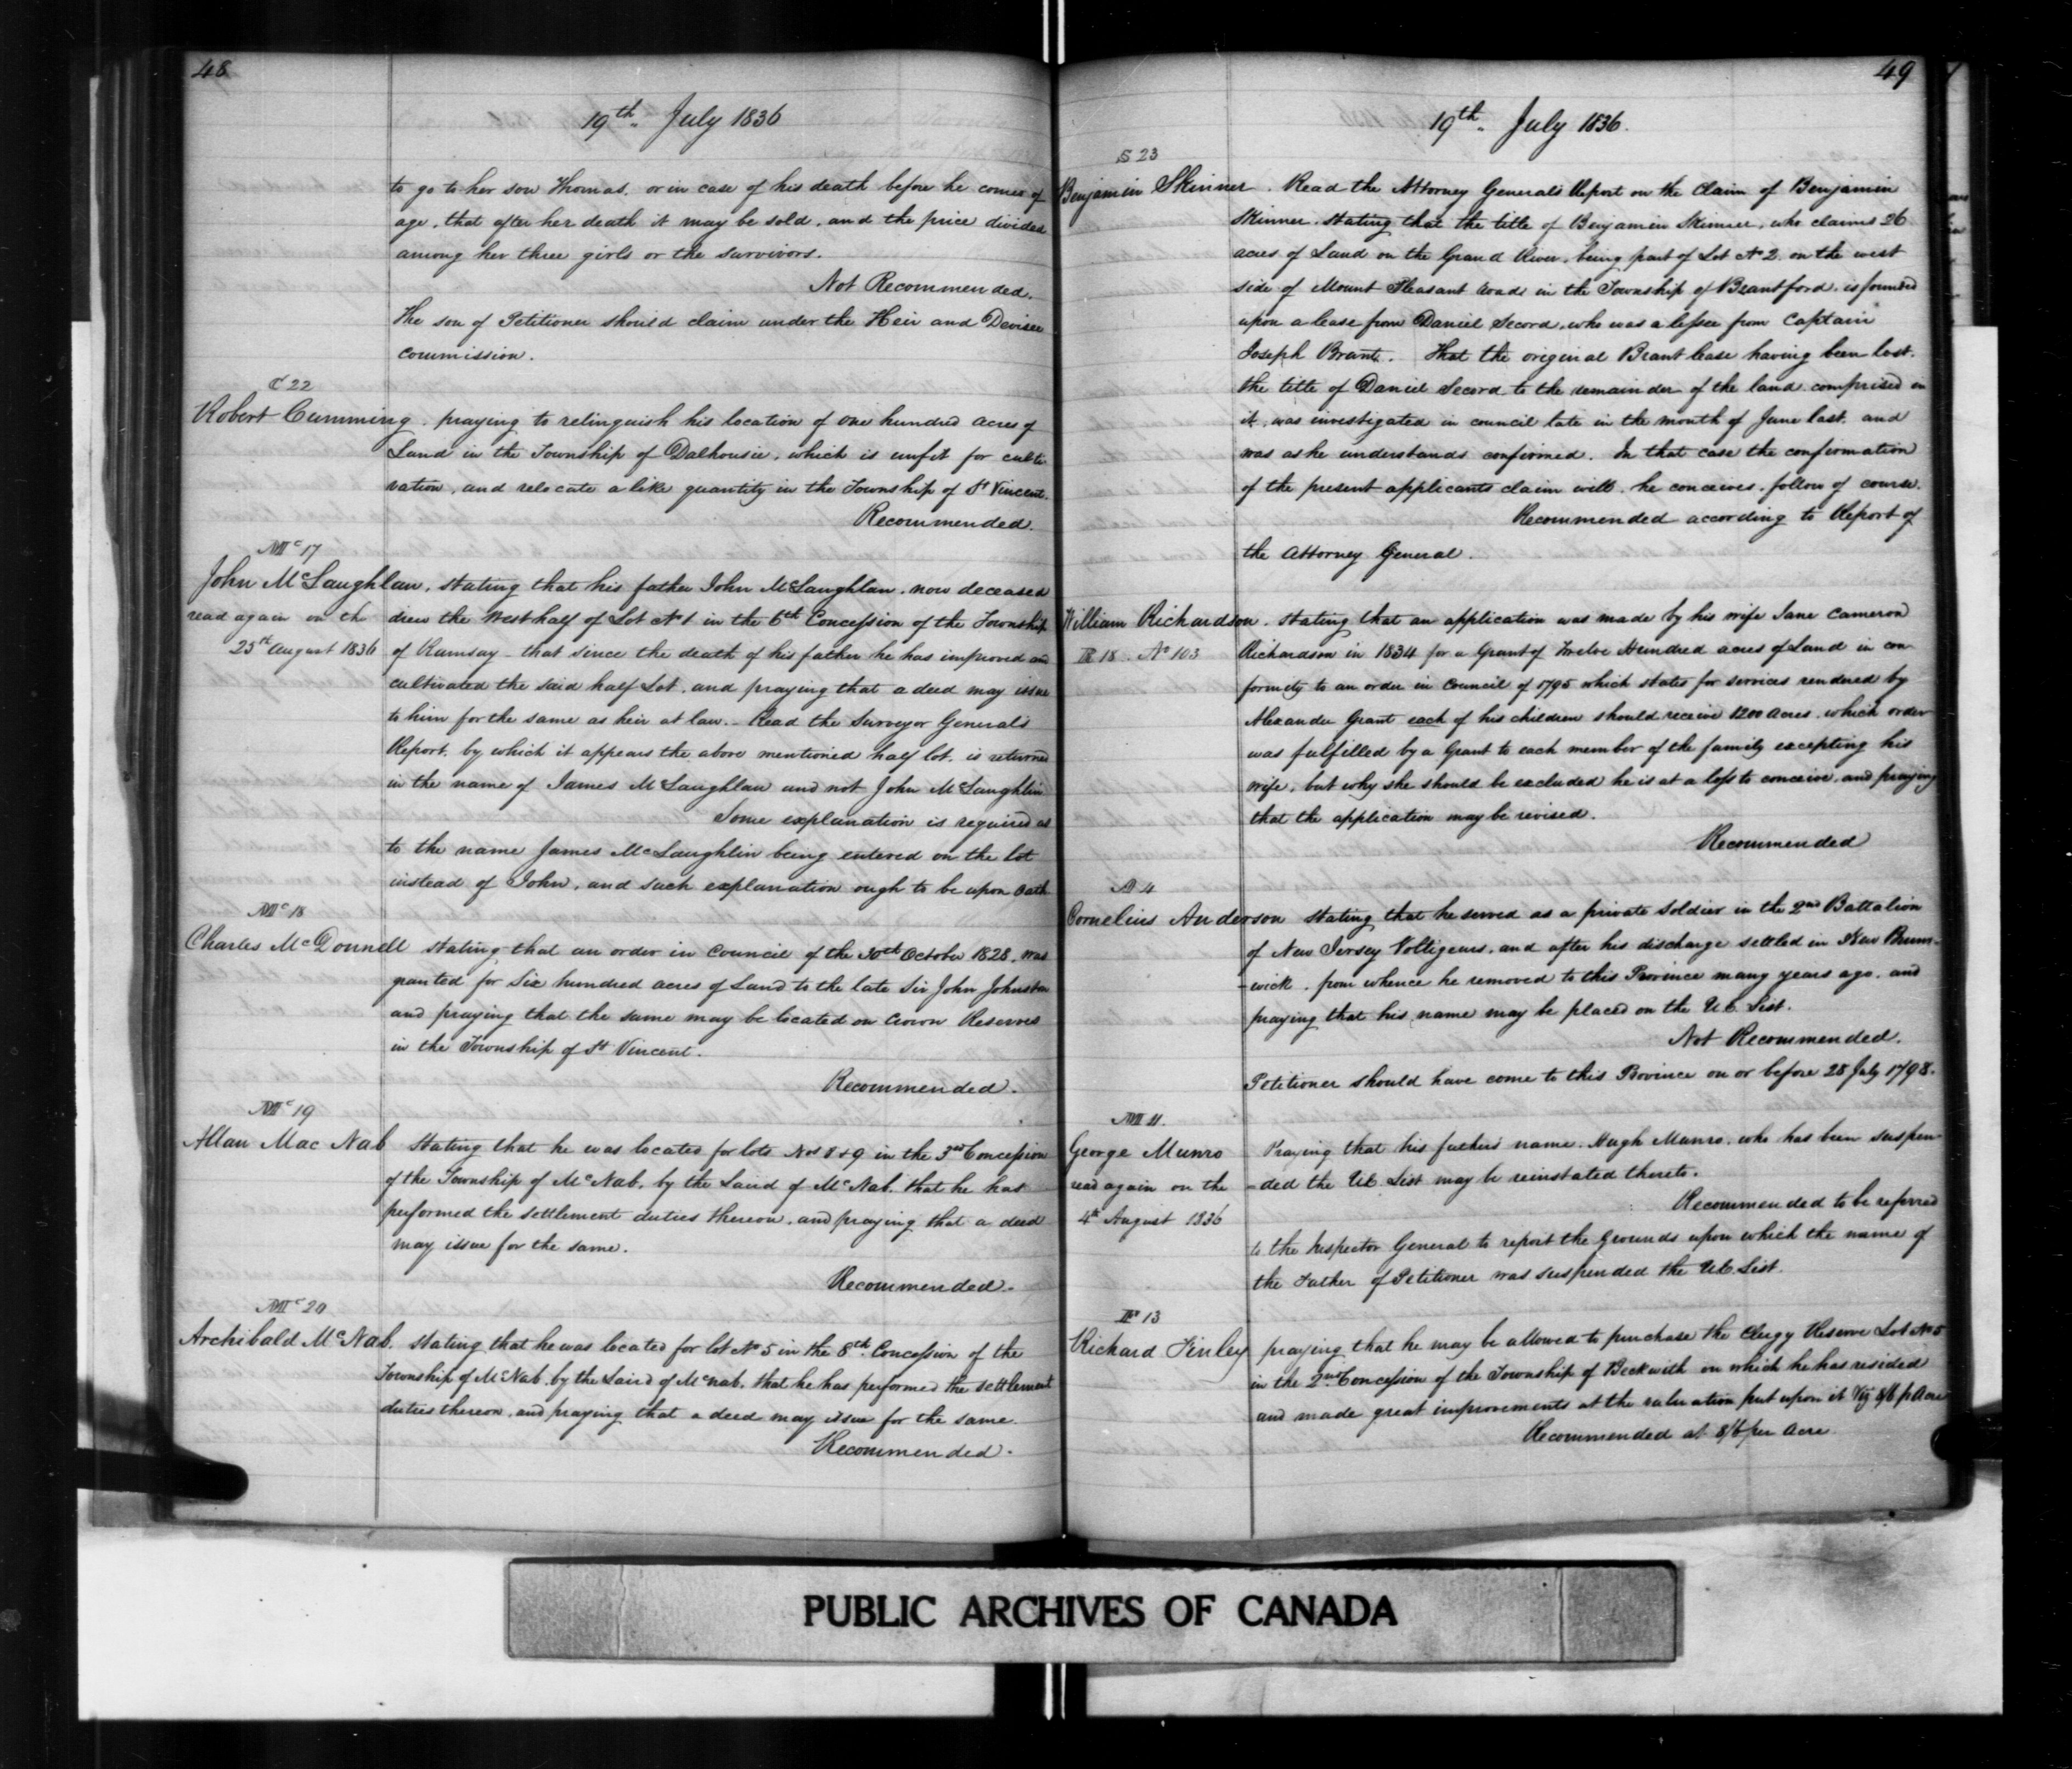 48
19th July 1836
to go to her son Thomas, or in case of his death before he comes of
age, that after her death it may be sold, and the price divided
among her three girls or the survivors.
Not Recommended.
The son of Petitioner should claim under the Heir and Devisee
Commission.
C 22
Robert Cumming, praying to relinquish his location of One hundred Acres of
Land in the Township of Dalhousie, which is unfit for culti
vation, and relocate a like quantity in the Township of St Vincent.
Recommended.
Mc 17
John McLaughlan, stating that his father John McLaughlan, now deceased
read again on the
drew the West half of Lot No 1 in the 6th Concession of the Township
25th August 1836
of Ramsay - that since the death of his father he has improved and
cultivated the said half Lot, and praying that a deed may issue
to him for the same as heir at law. - Read the Surveyor General's
Report, by which it appears the above mentioned half lot, is returned
in the name of James McLaughlan and not John McLaughlin
Some explanation is required as
to the name James McLaughlin being entered on the lot
instead of John, and such explanation ough to be upon Oath
Mc 18
Charles McDonnell stating that an order in Council of the 30th October 1828, was
granted for Six hundred acres of Land to the late Sir John Johnston
and praying that the same may be located on Crown Reserves
in the Township of St Vincent.
Recommended.
Mc 19
Allan Mac Nab stating that he was located for lots Nos 8 & 9 in the 3rd Concession
of the Township of McNab, by the Laird of McNab, that he has
performed the settlement duties thereon, and praying that a deed
may issue for the same.
Recommended.
Mc 20
Archibald McNab, stating that he was located for lot No 5 in the 8th Concession of the
Township of McNab, by the Laird of McNab, that he has performed the settlement
duties thereon, and praying that a deed may issue for the same.
Recommended.
49
19th July 1836.
S 23
Benjamin Skinner. Read the Attorney General's Report on the Claim of Benjamin
Skinner, stating that the title of Benjamin Skinner, who claims 26
acres of Land on the Grand River, being part of Lot No 2, on the west
side of Mount Pleasant Road in the Township of Brantford, is founded
upon a lease from Daniel Secord, who was a lessee from Captain
Joseph Brant. That the original Brant lease having been lost,
the title of Daniel Secord to the remainder of the land comprised in
it, was investigated in council late in the month of June last, and
was as he understands confirmed. In that case the confirmation
of the present applicants claim will, he conceives, follow of course.
Recommended according to Report of
the Attorney General.
William Richardson, stating that an application was made by his wife Jane Cameron
R 18. No 103
Richardson in 1834 for a Grant of Twelve Hundred acres of Land in con
formity to an order in Council of 1795 which states for services rendered by
Alexander Grant each of his children should receive 1200 Acres, which order
was fulfilled by a Grant to each member of the family excepting his
wife, but why she should be excluded he is at a loss to conceive, and praying
that the application may be revised.
Recommended
A 4
Cornelius Anderson stating that he served as a private Soldier in the 2nd Battalion
of New Jersey Voltigeurs, and after his discharge settled in New Bruns-
-wick, from whence he removed to this Province many years ago, and
praying that his name may be placed on the UE List.
Not Recommended.
Petitioner should have come to this Province on or before 28 July 1798.
M 11.
George Munro Praying that his father's name, Hugh Munro, who has been suspen
read again on the
-ded the UE List may be reinstated thereto.
4th August 1836
Recommended to be referred
to the Inspector General to report the Grounds upon which the name of
the Father of Petitioner was suspended the UE List.
F 13
Richard Finley praying that he may be allowed to purchase the Clergy Reserve Lot No 5
in the 2nd Concession of the Township of Beckwith on which he has resided
and made great improvements at the valuation put upon it Viz 8/6 p Acre
Recommended at 8/6 per Acre.
PUBLIC ARCHIVES OF CANADA